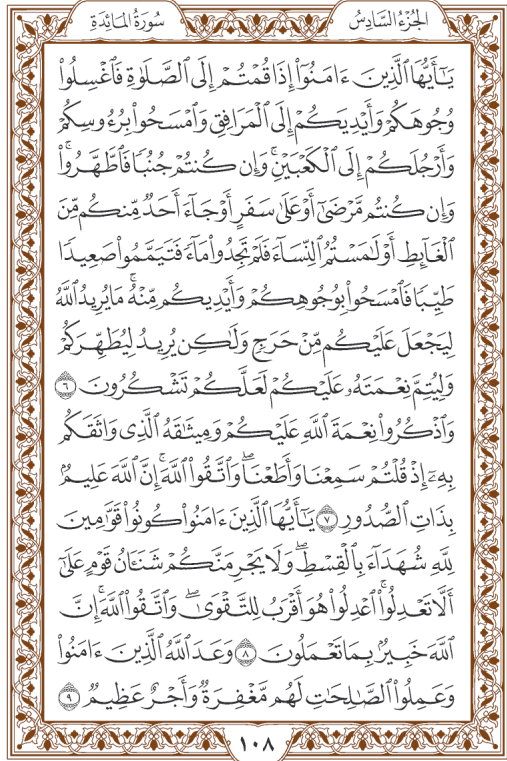 الجُزْءُ السَّادِسُ
سُورَةُ المَائِدَةِ
يَـٰٓأَيُّهَا ٱلَّذِينَ ءَامَنُوٓا۟ إِذَا قُمْتُمْ إِلَى ٱلصَّلَوٰةِ فَٱغْسِلُوا۟
وُجُوهَكُمْ وَأَيْدِيَكُمْ إِلَى ٱلْمَرَافِقِ وَٱمْسَحُوا۟ بِرُءُوسِكُمْ
وَأَرْجُلَكُمْ إِلَى ٱلْكَعْبَيْنِ ۚ وَإِن كُنتُمْ جُنُبًا فَٱطَّهَّرُوا۟ ۚ
وَإِن كُنتُم مَّرْضَىٰٓ أَوْ عَلَىٰ سَفَرٍ أَوْ جَآءَ أَحَدٌ مِّنكُم مِّنَ
ٱلْغَآئِطِ أَوْ لَـٰمَسْتُمُ ٱلنِّسَآءَ فَلَمْ تَجِدُوا۟ مَآءً فَتَيَمَّمُوا۟ صَعِيدًا
طَيِّبًا فَٱمْسَحُوا۟ بِوُجُوهِكُمْ وَأَيْدِيكُم مِّنْهُ ۚ مَا يُرِيدُ ٱللَّهُ
لِيَجْعَلَ عَلَيْكُم مِّنْ حَرَجٍ وَلَـٰكِن يُرِيدُ لِيُطَهِّرَكُمْ
وَلِيُتِمَّ نِعْمَتَهُۥ عَلَيْكُمْ لَعَلَّكُمْ تَشْكُرُونَ ٦
وَٱذْكُرُوا۟ نِعْمَةَ ٱللَّهِ عَلَيْكُمْ وَمِيثَـٰقَهُ ٱلَّذِى وَاثَقَكُم
بِهِۦٓ إِذْ قُلْتُمْ سَمِعْنَا وَأَطَعْنَا ۖ وَٱتَّقُوا۟ ٱللَّهَ ۚ إِنَّ ٱللَّهَ عَلِيمٌۢ
بِذَاتِ ٱلصُّدُورِ ٧ يَـٰٓأَيُّهَا ٱلَّذِينَ ءَامَنُوا۟ كُونُوا۟ قَوَّٰمِينَ
لِلَّهِ شُهَدَآءَ بِٱلْقِسْطِ ۖ وَلَا يَجْرِمَنَّكُمْ شَنَـَٔانُ قَوْمٍ عَلَىٰٓ
أَلَّا تَعْدِلُوا۟ ۚ ٱعْدِلُوا۟ هُوَ أَقْرَبُ لِلتَّقْوَىٰ ۖ وَٱتَّقُوا۟ ٱللَّهَ ۚ إِنَّ
ٱللَّهَ خَبِيرٌۢ بِمَا تَعْمَلُونَ ٨ وَعَدَ ٱللَّهُ ٱلَّذِينَ ءَامَنُوا۟
وَعَمِلُوا۟ ٱلصَّـٰلِحَـٰتِ ۙ لَهُم مَّغْفِرَةٌ وَأَجْرٌ عَظِيمٌ ٩
١٠٨